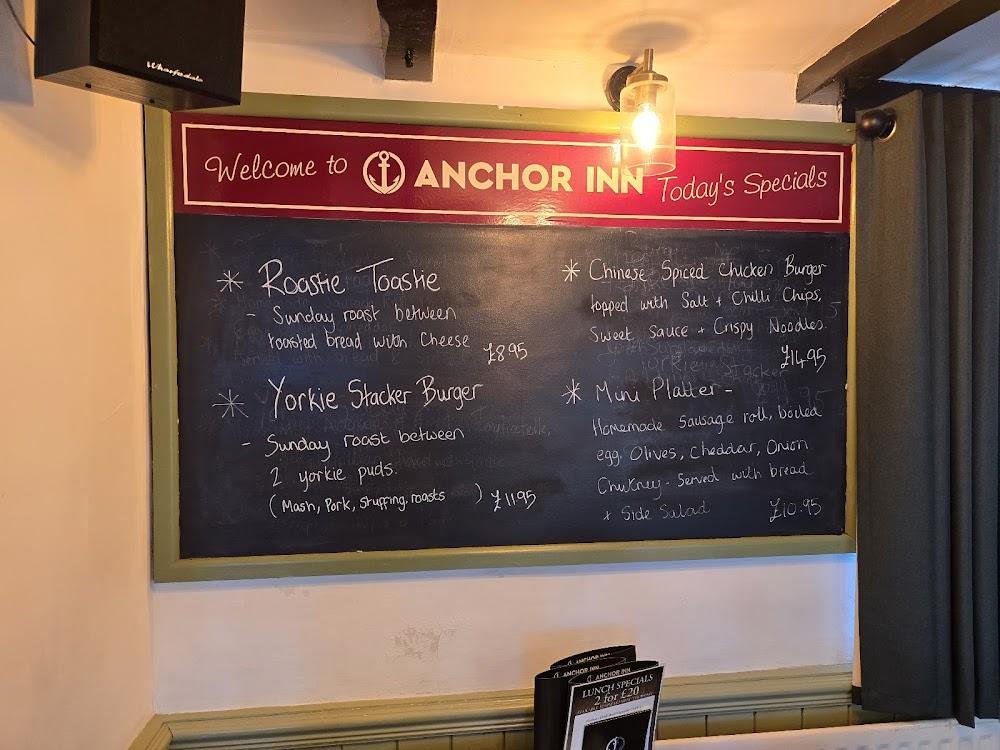 Wharfedale
Welcome to ANCHOR INN Today's Specials
* Roastie Toastie
- Sunday roast between
toasted bread with Cheese £8.95
* Yorkie Stacker Burger
- Sunday roast between
2 yorkie puds.
(Mash, Pork, Stuffing, roasts ) £11.95
* Chinese Spiced Chicken Burger
topped with Salt + Chilli Chips,
Sweet Sauce + Crispy Noodles.
£14.95
* Mini Platter -
Homemade Sausage roll, boiled
egg, Olives, Cheddar, Onion
Chutney - Served with bread
+ Side Salad £10.95
ANCHOR INN
ANCHOR INN
ANCHOR INN
LUNCH SPECIALS
2 for £20